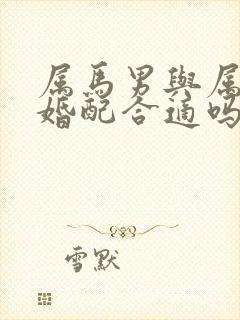 属马男與属
婚配合適吗
雪默